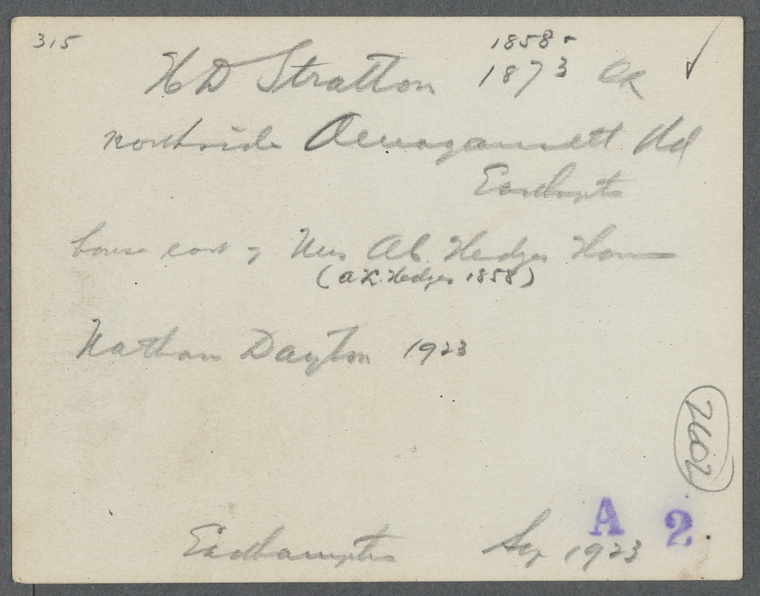 315
1858-
H D Stratton 1873 OK
northside Amagansett Rd
Easthampton
house east of Mrs Ab. Hedges Home
(A.L. Hedges 1858)
Nathan Dayton 1923
2602
A 2
Easthampton Sep 1923